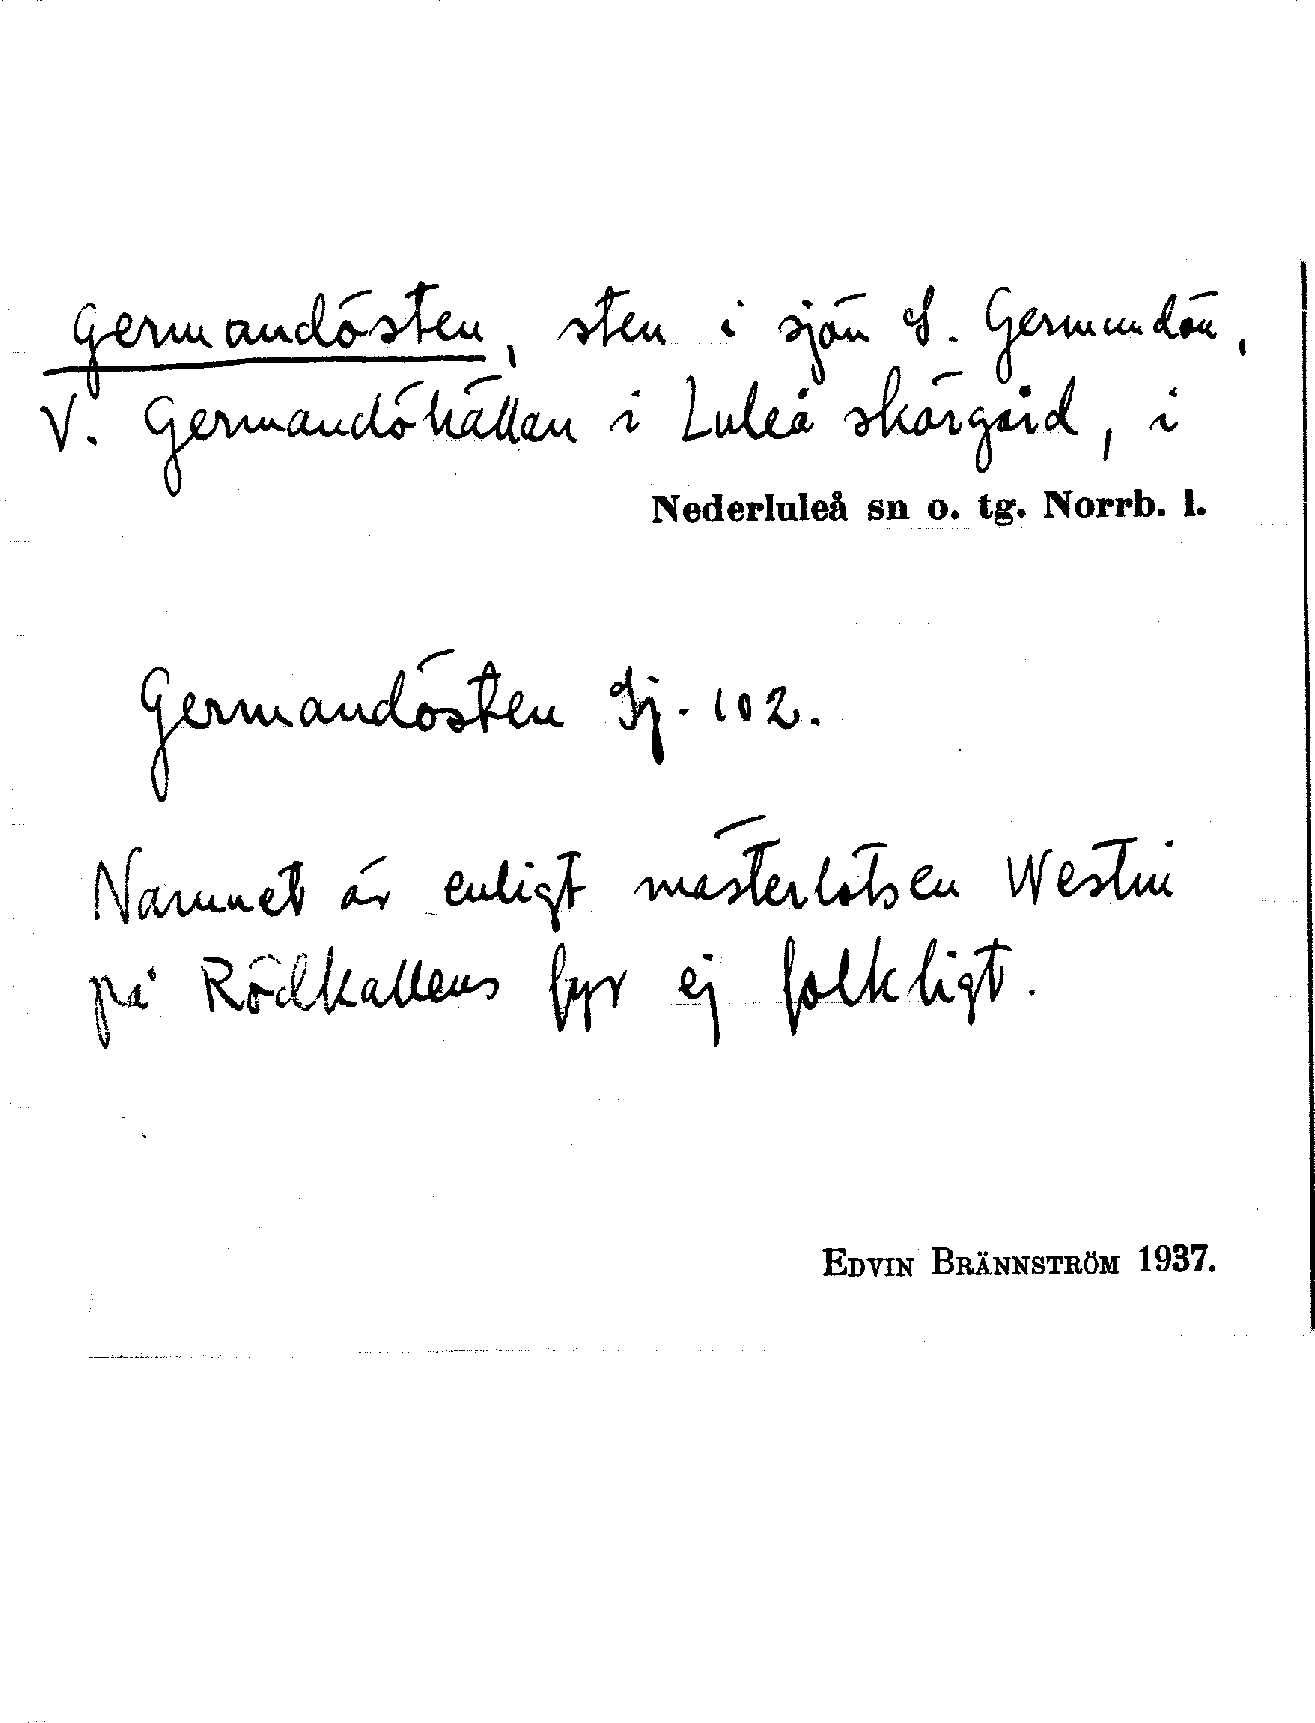 Germandösten, sten i sjön S. Germundön,
V. Germandöhällan i Luleå skärgård, i
Nederluleå sn o. tg. Norrb. l.
Germandösten Sj. 102.
Namnet är enligt mästerlotsen Westin
på Rödkallens fyr ej folkligt.
EDVIN BRÄNNSTRÖM 1937.